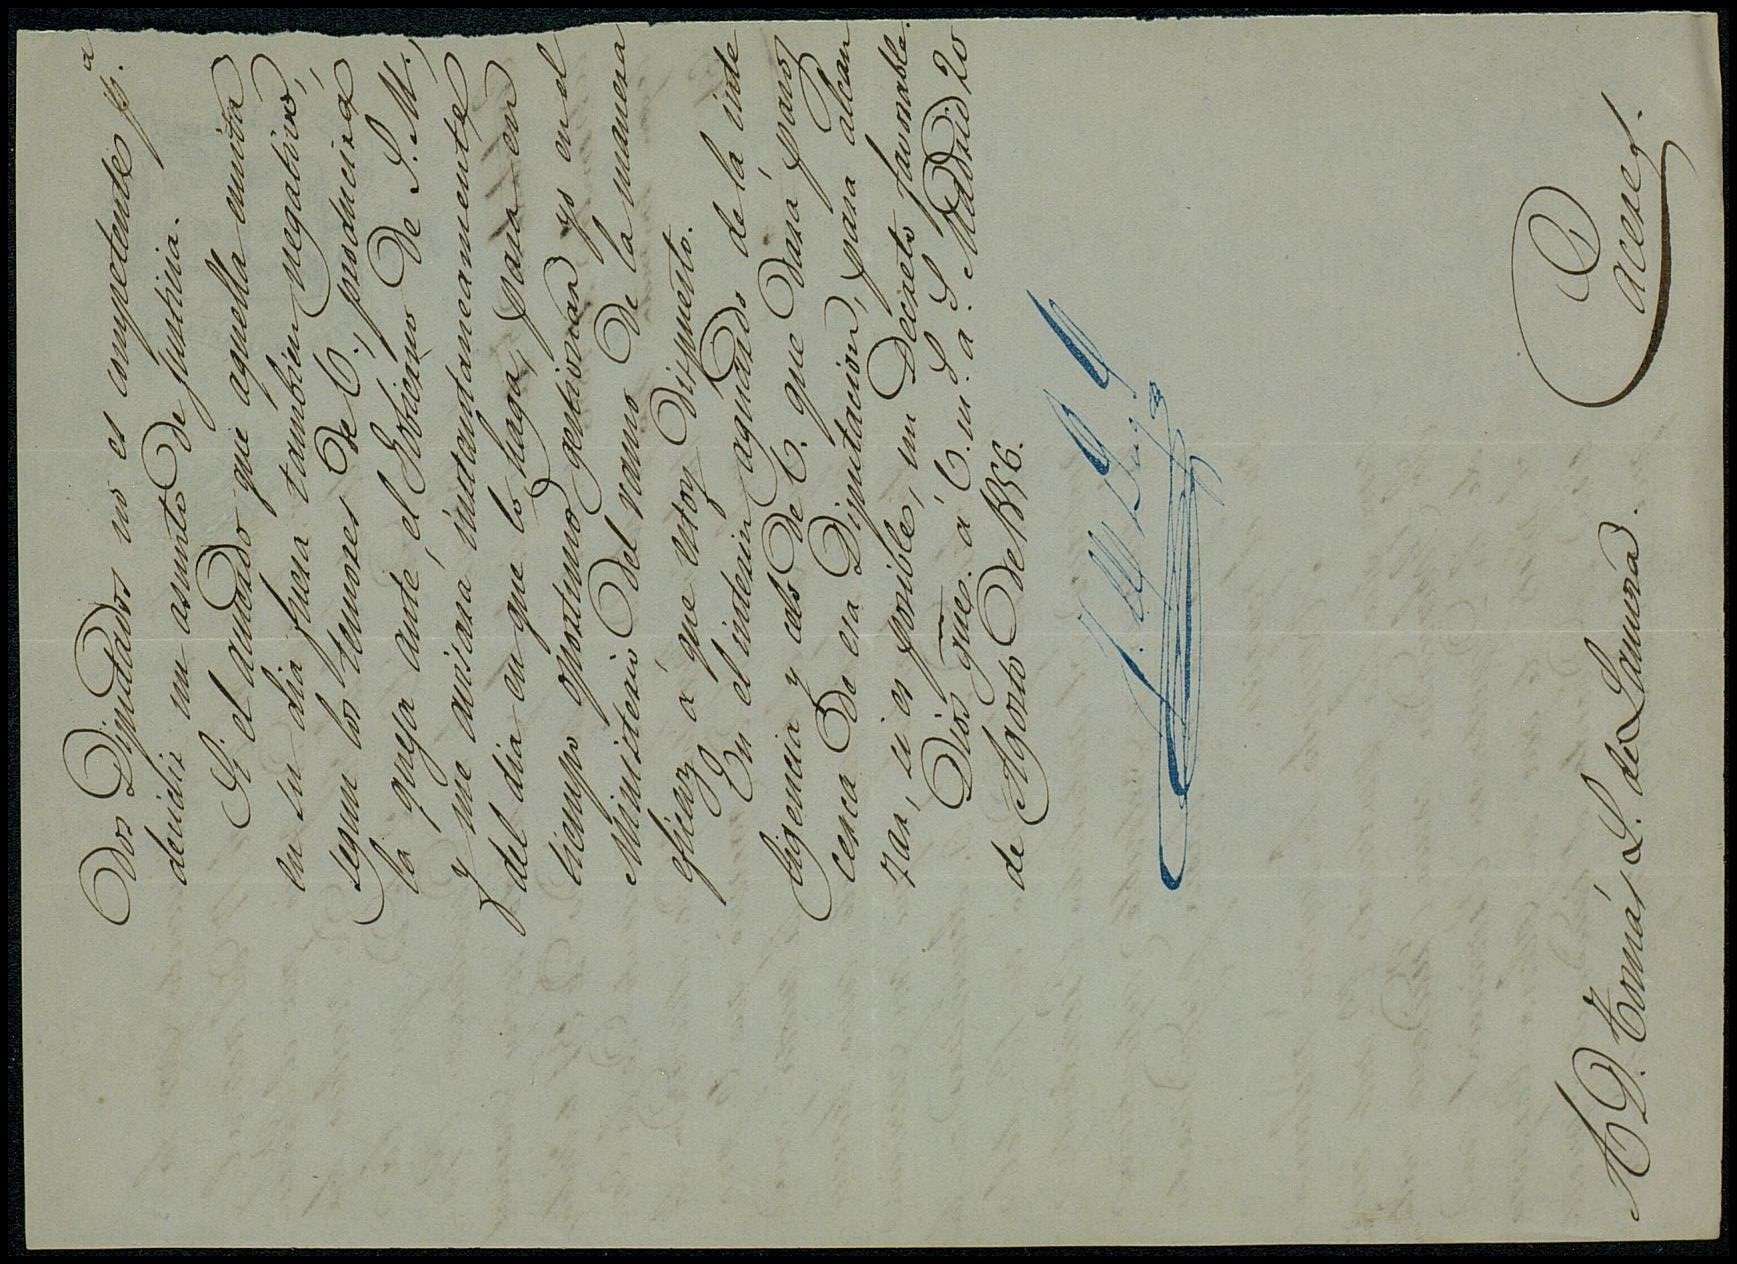 Dos Diputados no es competente p.ª
decidir un asunto de justicia.
Si el acuerdo que aquella emita
en su dia fuera tambien negativo,
segun los temores de V., producirá
la queja ante el Gobierno de S. M.,
y me avisará instantaneamente
del dia en que lo haga, para en
tiempo oportuno gestionar yo en el
Ministerio del ramo de la manera
eficaz á que estoy dispuesto.
En el interin aguardo de la inte
ligencia y celo de V. que dará pasos
cerca de esa Diputacion, para alcan
zar, si es posible, un Decreto favorable.
Dios güe. á V. m.s a.s Madrid 20
de Agosto de 1856.
A D. Tomás L. de Lamora.
Caceres.